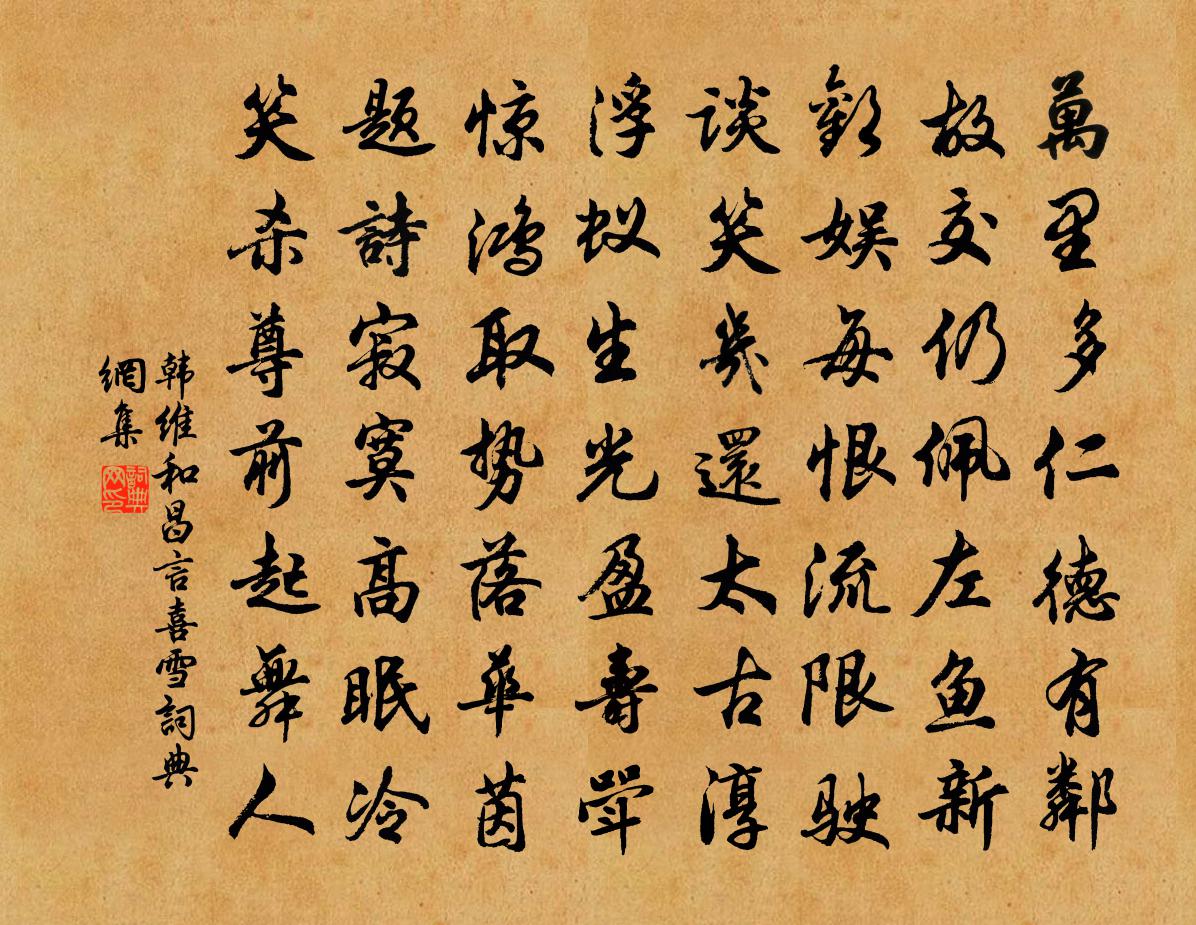 萬里多仁德有鄰
故交仍佩左魚新
歡娱每恨流限駛
谈笑幾還太古淳
浮蚁生光盈壽斝
惊鸿取势落華茵
题詩寂寞高眠冷
笑杀尊前起舞人
韩维和昌言喜雪詞典
網集
詞典
网印